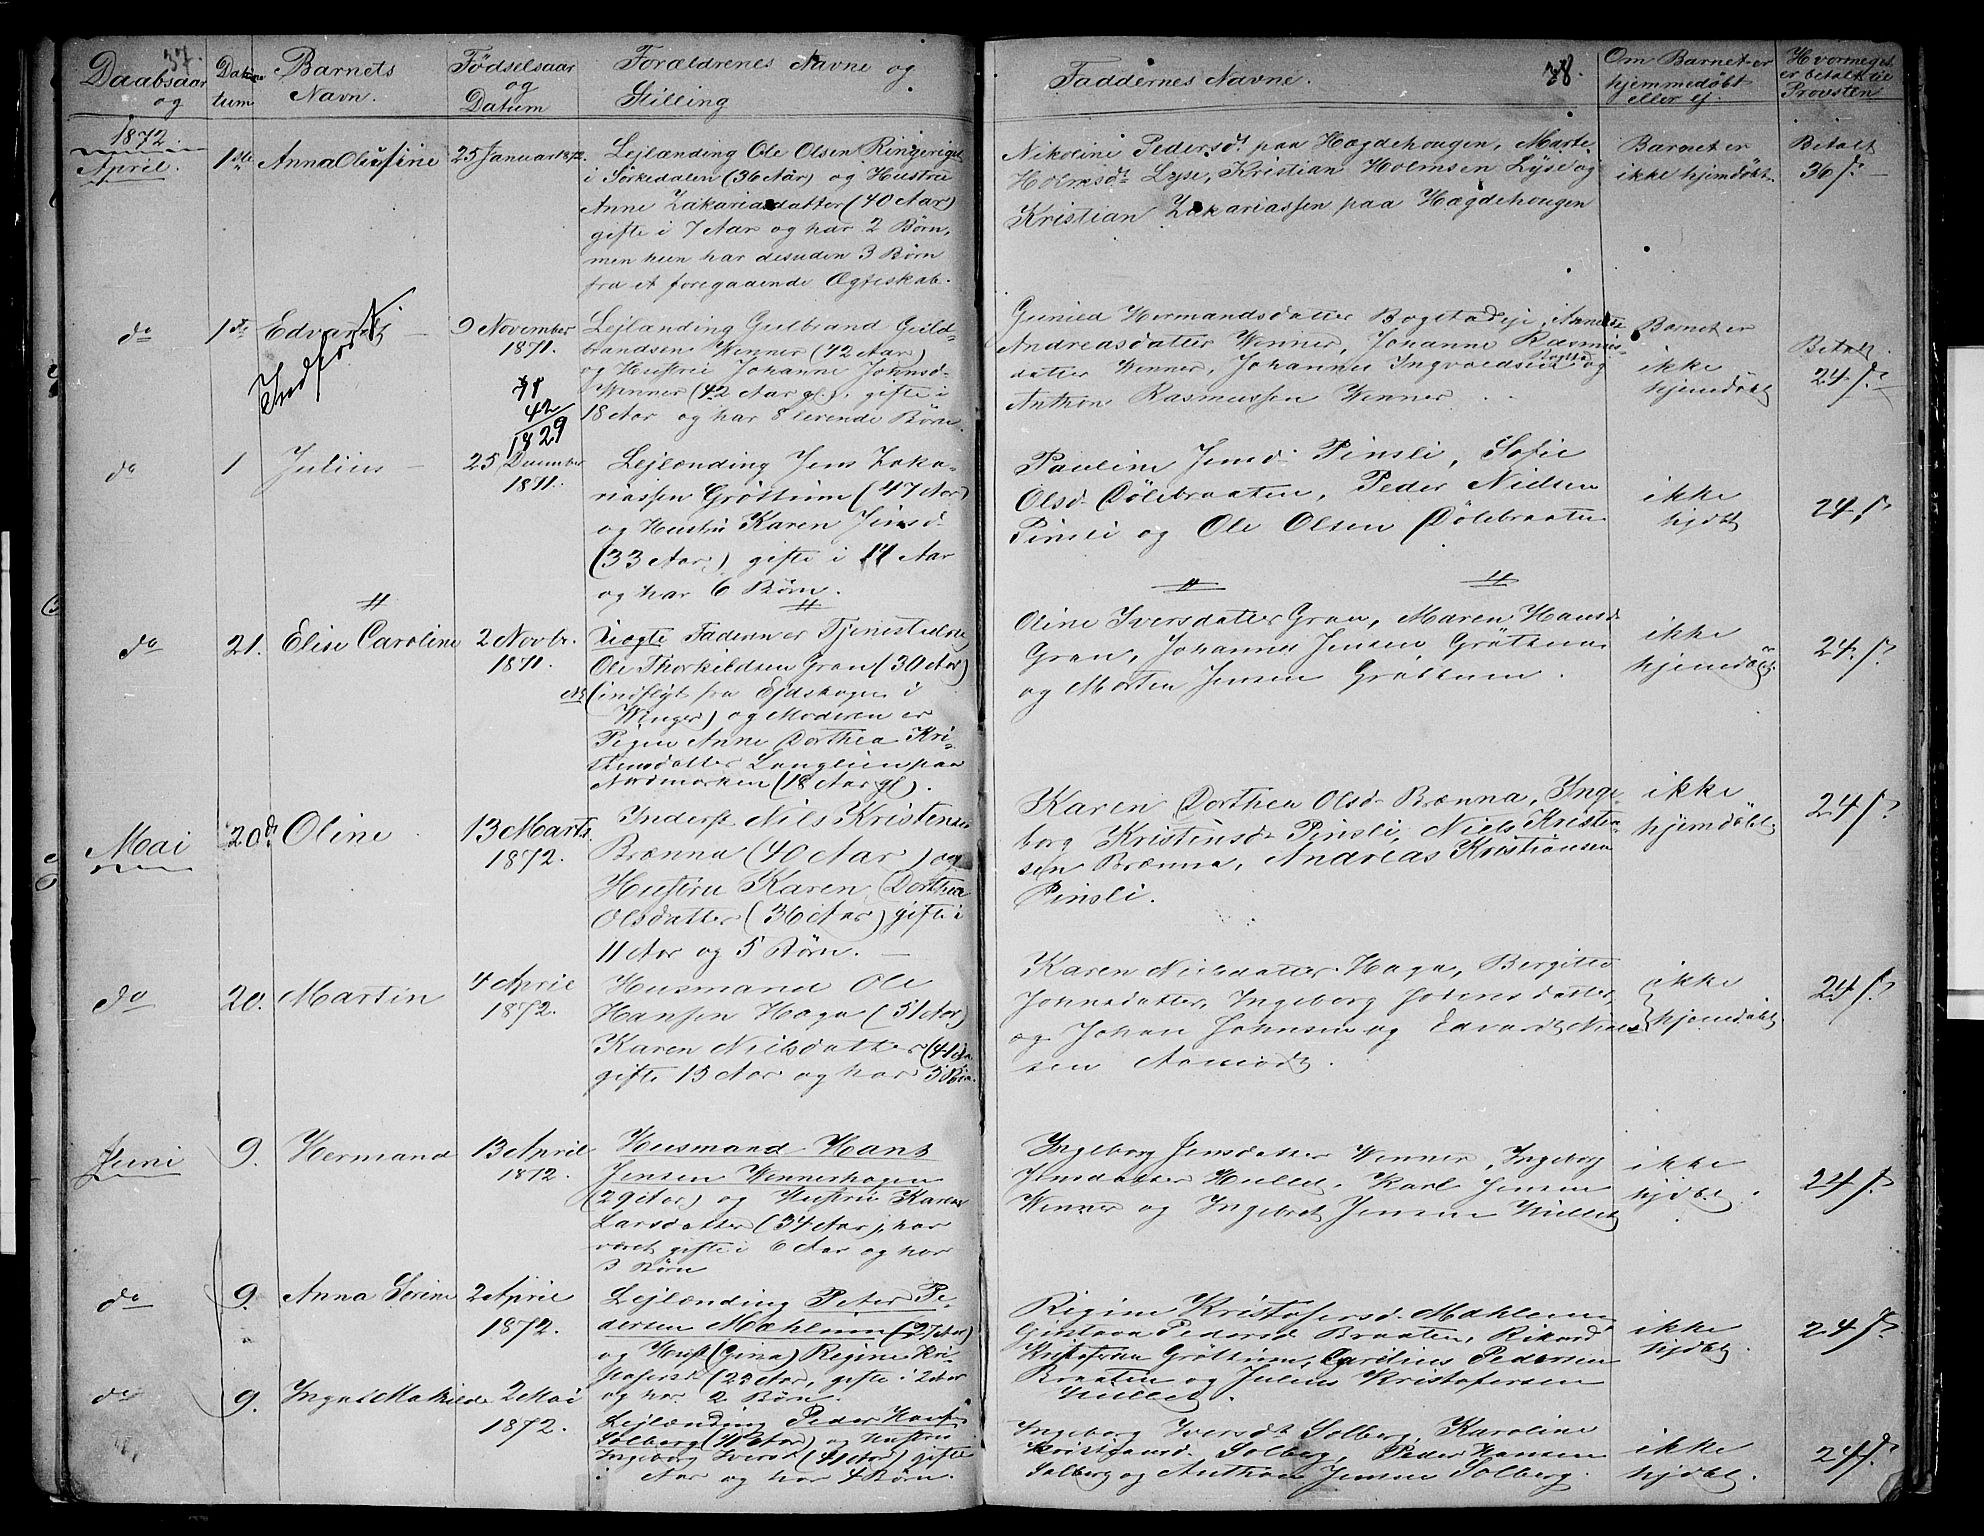 37.
Daabsaar
og
Datum
Barnets
Navn.
Fødselsaar
og
Datum
Forældrenes Navne og
Stilling
Faddernes Navne.
38.
Om Barnet er
hjemmedøbt
eller ej.
Hvormeget
er betalt til
Provsten
1872
April.
1ste
Anna Olufine
25 Januar 1872.
Lejlænding Ole Olsen Ringeriget
i Sørkedalen (36 Aar) og Hustru
Anne Zakariasdatter (40 Aar)
gifte i 7 Aar og har 2 Børn,
men hun har desuden 3 Børn
fra et foregaaende Ægteskab.
Nikoline Pedersdt paa Hægdehougen, Marte
Holmsdt Lyse, Kristian Holmsen Lyse og
Kristian Zakariassen paa Hægdehougen
Barnet er
ikke hjemdøbt
Betalt
36 s.
do
1ste
Edvardt
Indført
9 November
1871.
42
1829
Lejlænding Gulbrand Guld-
brandsen Wenner (42 Aar)
og Hustru Johanne Johnsd.
Wenner (42 Aar gl.), gifte i
18 Aar og har 8 levende Børn.
Gunild Hermandsdatter Bogstadeje, Annette
Andreasdatter Wenner, Johanne Rasmus-
datter Wenner, Johannes Ingvoldsen Bogstad og
Anthon Rasmussen Wenner.
Barnet er
ikke
hjemdøbt
Betalt
24 s.
do
1
Julius
25 December
1871.
Lejlænding Jens Zaka-
riassen Grøttum (47 Aar)
og Hustru Karen Jensd.
(33 Aar), gifte i 14 Aar
og har 6 Børn.
Pauline Jensd. Pinsli, Sofie
Olsd. Dølebraaten, Peder Nielsen
Pinsli og Ole Olsen Dølebraaten
ikke
hjdbt
24 s.
do
21.
Elise Caroline
2 Novbr.
1871.
Uægte Faderen er
Ole Thorkildsen Gran (30 Aar)
NB (indflyt fra Ejdskogen i
Winger) og Moderen er
Pigen Anne Dorthea Kri-
stensdatter Langlien paa
Nordmarken (18 Aar gl).
Oline Iversdatter Gran, Maren Hansd.
Gran, Johannes Jensen Grøttum
og Morten Jensen Grøttum.
ikke
hjemdøbt
24 s.
Mai
20de
Oline
13 Marts
1872.
Inderst Nils Kristensen
Brænna (40 Aar) og
Hustru Karen Dorthea
Olsdatter (36 Aar) gifte i
11 Aar og 5 Børn.
Karen Dorthea Olsd. Brænna, Inge-
borg Kristensd. Pinsli, Niels Kristen-
sen Brænna, Andreas Kristiansen
Pinsli.
ikke
hjemdøbt
24 s.
do
20.
Martin
4 April
1872.
Husmand Ole
Hansen Haga (51 Aar)
Karen Nielsdatter (41 Aar
gifte 13 Aar og har 5 Børn.
Karen Nielsdatter Haga, Bergitte
Johnsdatter, Ingeborg
og Johan Johnsen og Edvardt Niel-
sen Aamodt.
ikke
hjemdøbt
24 s.
Juni
9.
Hermand
13 April
1872.
Husmand Hans
Jensen Wennerhagen
(29 Aar) og Hustru Karen
Larsdatter (34 Aar), har
været gifte i 6 Aar og har
3 Børn
Ingeborg Jensdatter Wenner, Ingeborg
Jensdatter Hullet, Karl Jensen
Wenner og Ingebret Jensen Hullet
ikke
hjdbt.
24 s.
do
9.
Anna Serine
2 April
1872.
Lejlænding Peter Pe-
dersen Mæhlum (27 Aar)
og Hust. (Gina) Regine Kri-
stofersd. (23 Aar, gifte i 2 Aar
og har 2 Børn.
Regine Kristofersd. Mæhlum
Gustava Pedersd. Braaten, Rikard
Kristofersen Grøttum, Carelius Pedersen
Braaten og Julius Kristofersen
Hullet.
ikke
hjdbt.
24 s.
do
9.
Inga Mathilde
2 Mai
1872.
Lejlænding Peder Hansen
Solberg (41 Aar) og Hustru
Ingeborg Iversd. (41 Aar) gifte
i Aar og har 4 Børn.
Ingeborg Iversdt Solberg, Karoline
Kristiansd. Solberg, Peder Hansen
Solberg og Anthon Jensen Solberg.
ikke
hjdbt.
24 s.